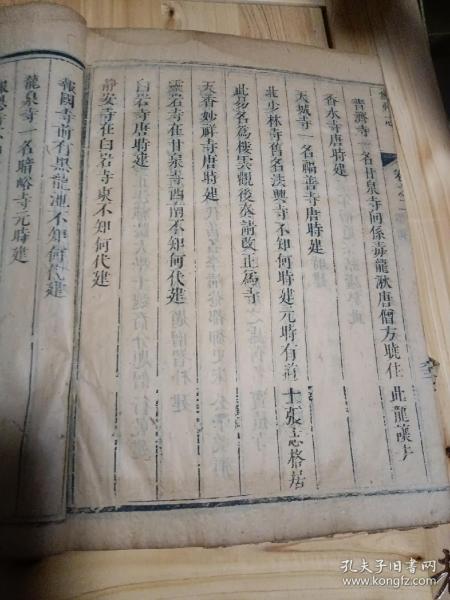 普濟寺一名甘泉寺間係毒龍湫唐僧方曉住此龍讓去
香水寺唐時建
天城寺一名福善寺唐時建
北少林寺舊名法興寺不知何時建元時有道士張志格居
此易名為棲雲觀後奏請改正為寺
天香妙祥寺唐時建
靈岩寺在甘泉寺西南不知何代建
白岩寺唐時建
靜安寺在白岩寺東不知何代建
報國寺前有黑龍池不知何代建
龍泉寺一名暗峪寺元時建
孔夫子旧书网
www.kongfz.com